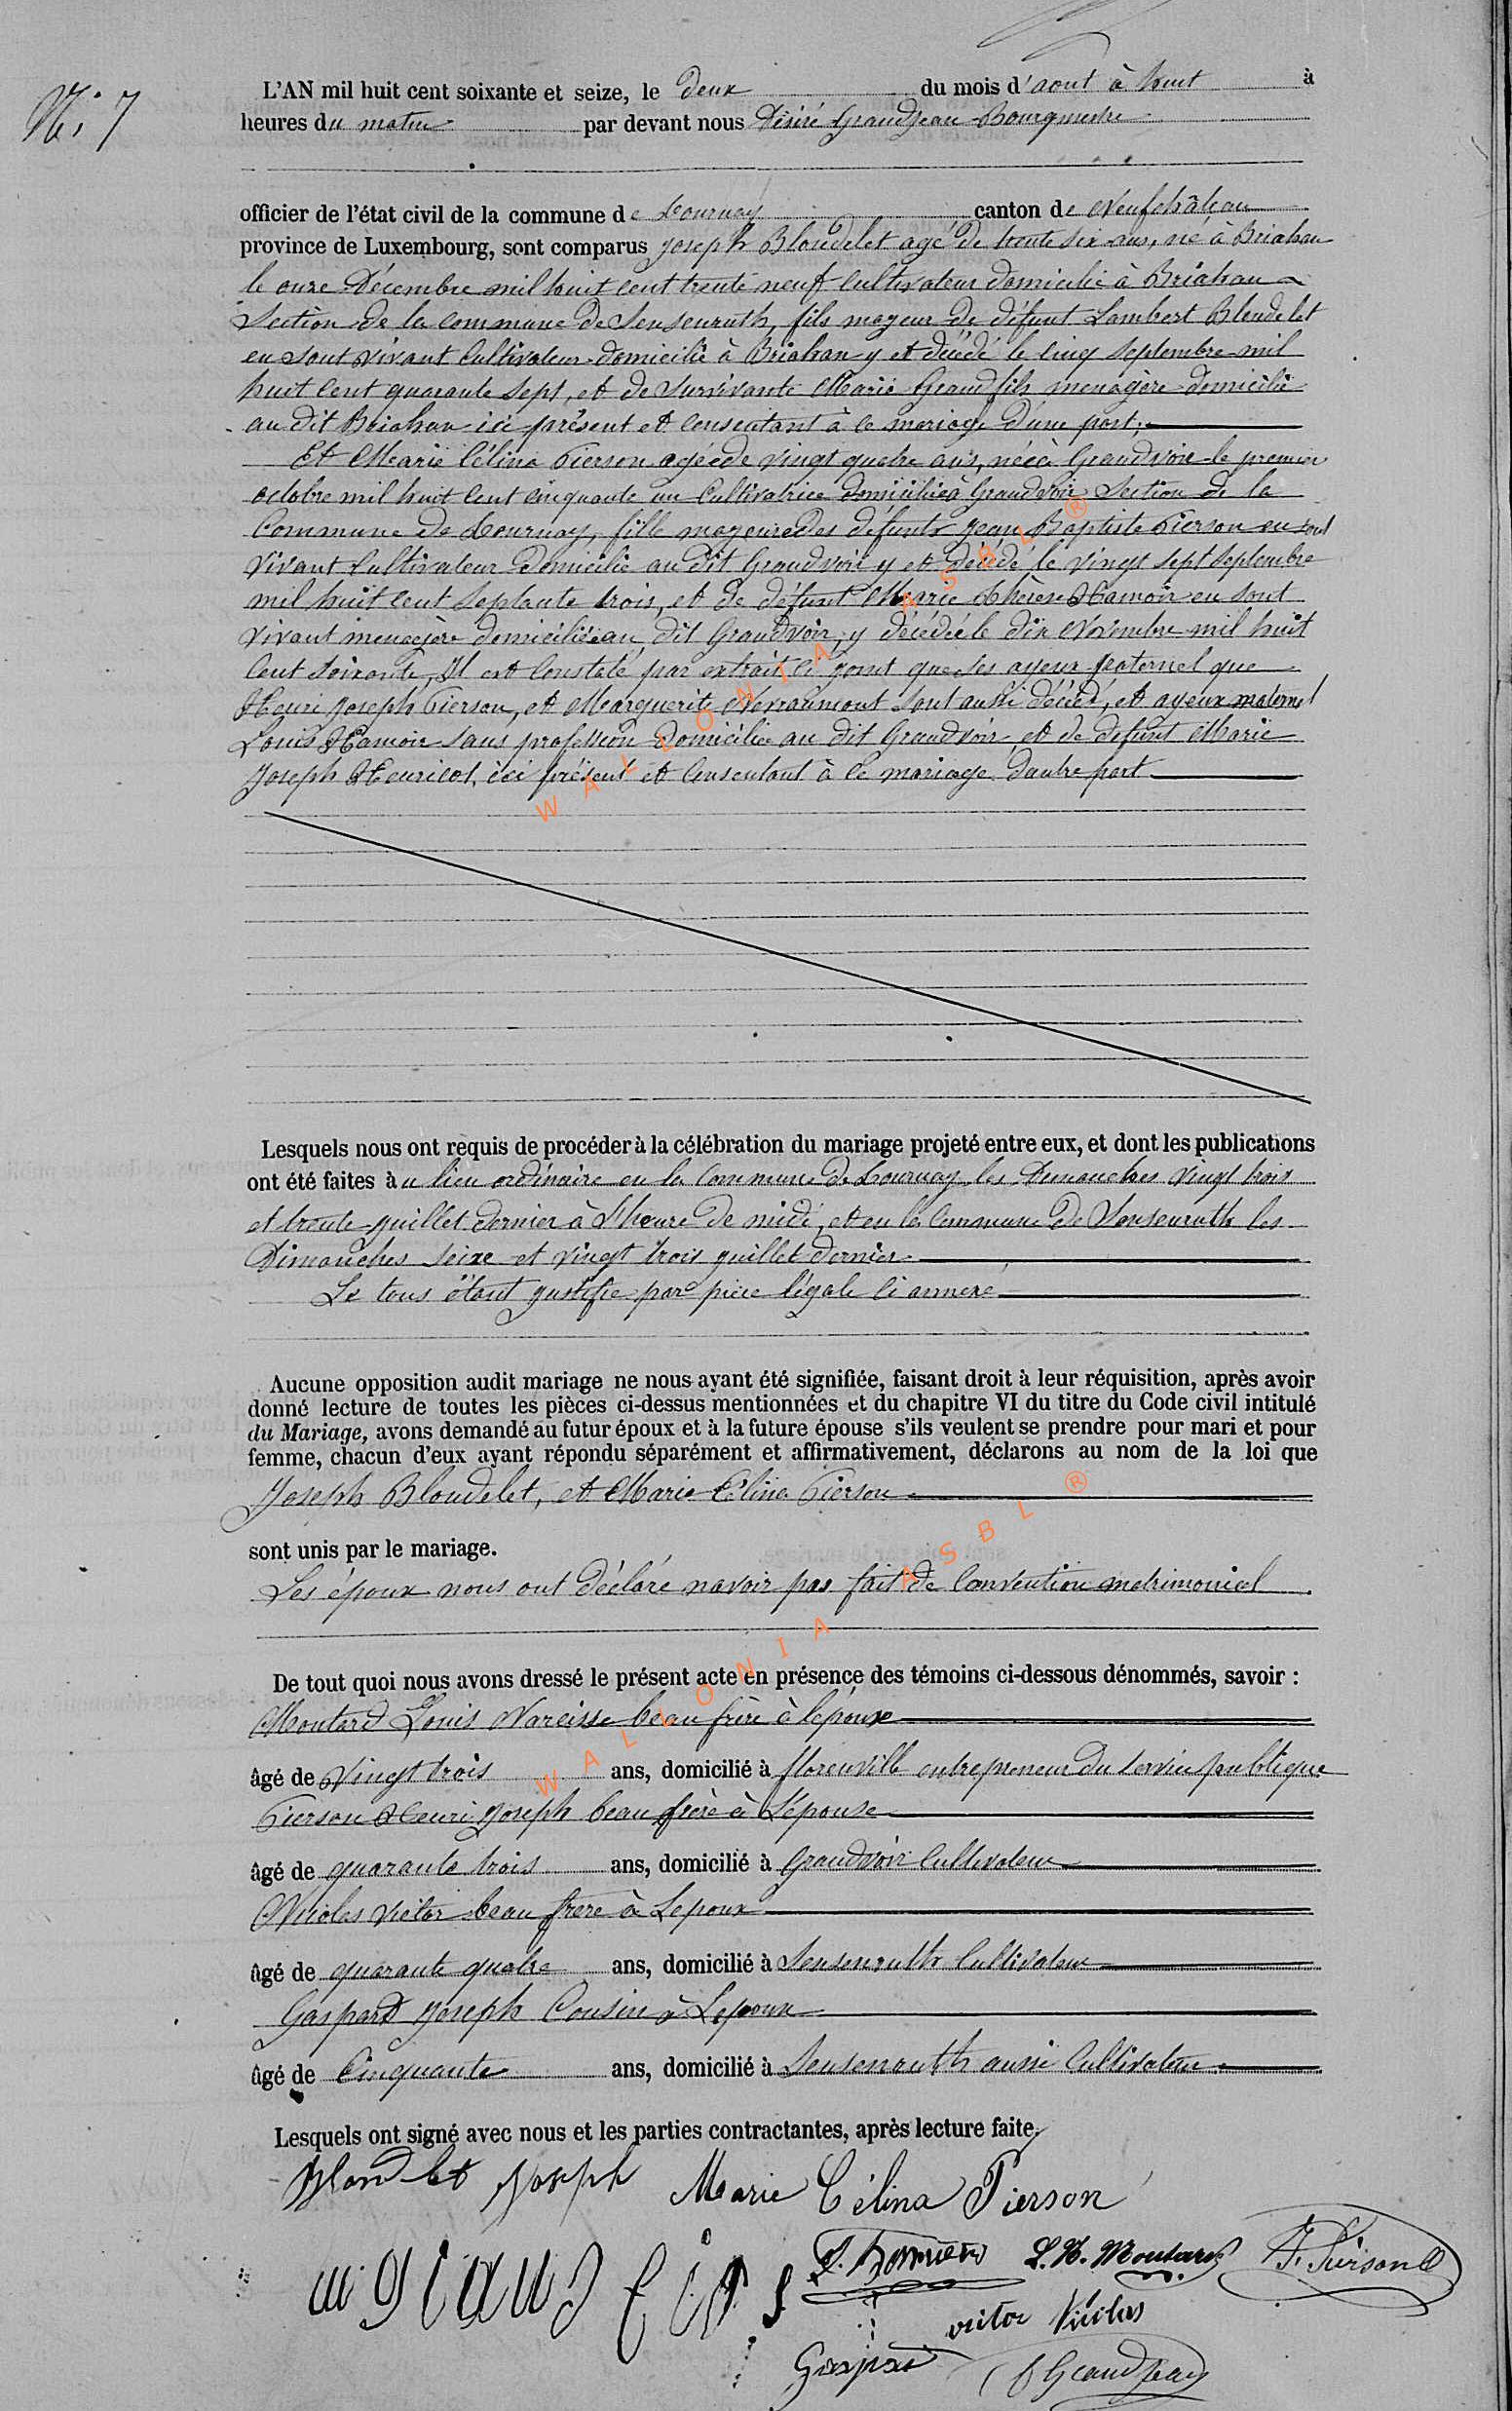 N°. 7
L'AN mil huit cent soixante et seize, le deux du mois d'aout à huit à
heures du matin par devant nous Désiré Grandjean Bourgmestre
officier de l'état civil de la commune de Tournay canton de Neufchâteau
province de Luxembourg, sont comparus Joseph Blondelet agé de trente six ans, né à Briahan
le onze Décembre mil huit cent trente neuf Cultivateur domicilié à Briahan
Section de la commune de Sensenruth, fils mageur de défunt Lambert Blondelet
en sont vivant Cultivateur domicilié à Briahan y et décédé le cinq Septembre mil
huit cent quarante sept, et de Survivante Marie Grandfils menagère domicilié
au dit Briahan ici présent et Consentant à ce mariage d'une part,
Et Marie Célina Pierson agée de vingt quatre ans, née à Grandvoir le premier
octobre mil huit cent cinquante un Cultivatrice domiciliée à Grandvoir Section de la
Commune de Tournay, fille mageure des défunts Jean Baptiste Pierson en sont
vivant Cultivateur domicilié au dit Grandvoir y et décédé le vingt sept Septembre
mil huit cent septante trois, et de défunt Marie Thérèse Hamoir en sont
vivant menagère domiciliée au dit Grandvoir, y décédée le dix Novembre mil huit
cent soixante, Il est Constaté par extrait ci joint que les ayeux paternel que
Henri Joseph Pierson, et Marguerite Nerraumont sont aussi décédé, et ayeux maternel
Louis Hamoir sans profession domicilié au dit Grandvoir et de defunt Marie
Joseph Henricot, ici présent et Consentant à ce mariage d'autre part
Lesquels nous ont requis de procéder à la célébration du mariage projeté entre eux, et dont les publications
ont été faites au lieu ordinaire en la Commune de Tournay les Dimanches vingt trois
et trente juillet dernier à l'heure de midi, et en la Commune de Sensenruth les
Dimanches seize et vingt trois juillet dernier
Le tous étant justifie par pièce légale ci annexé
Aucune opposition audit mariage ne nous ayant été signifiée, faisant droit à leur réquisition, après avoir
donné lecture de toutes les pièces ci-dessus mentionnées et du chapitre VI du titre du Code civil intitulé
du Mariage, avons demandé au futur époux et à la future épouse s'ils veulent se prendre pour mari et pour
femme, chacun d'eux ayant répondu séparément et affirmativement, déclarons au nom de la loi que
Joseph Blondelet, et Marie Célina Pierson
sont unis par le mariage.
Les époux nous ont déclaré navoir pas fait de Convention matrimonial
De tout quoi nous avons dressé le présent acte en présence des témoins ci-dessous dénommés, savoir :
Moutard Louis Narcisse beau frère à l'époux
âgé de Vingt trois ans, domicilié à florenville entrepreneur du service publique
Pierson Henri Joseph beau frère à L'épouse
âgé de quarante trois ans, domicilié à Grandvoir Cultivateur
Nicolas Victor beau frère à Lepoux
âgé de quarante quatre ans, domicilié à Sensenruth Cultivateur
Gaspard Joseph Cousin à Lepoux
âgé de Cinquante ans, domicilié à Sensenruth aussi Cultivateur
Lesquels ont signé avec nous et les parties contractantes, après lecture faite.
Blondlet Joseph Marie Célina Pierson
m grand fils L. N. Moutard Pierson
victor Nicolas
Gaspard Grandjean
WALLONIA ASBL ®
WALLONIA ASBL ®